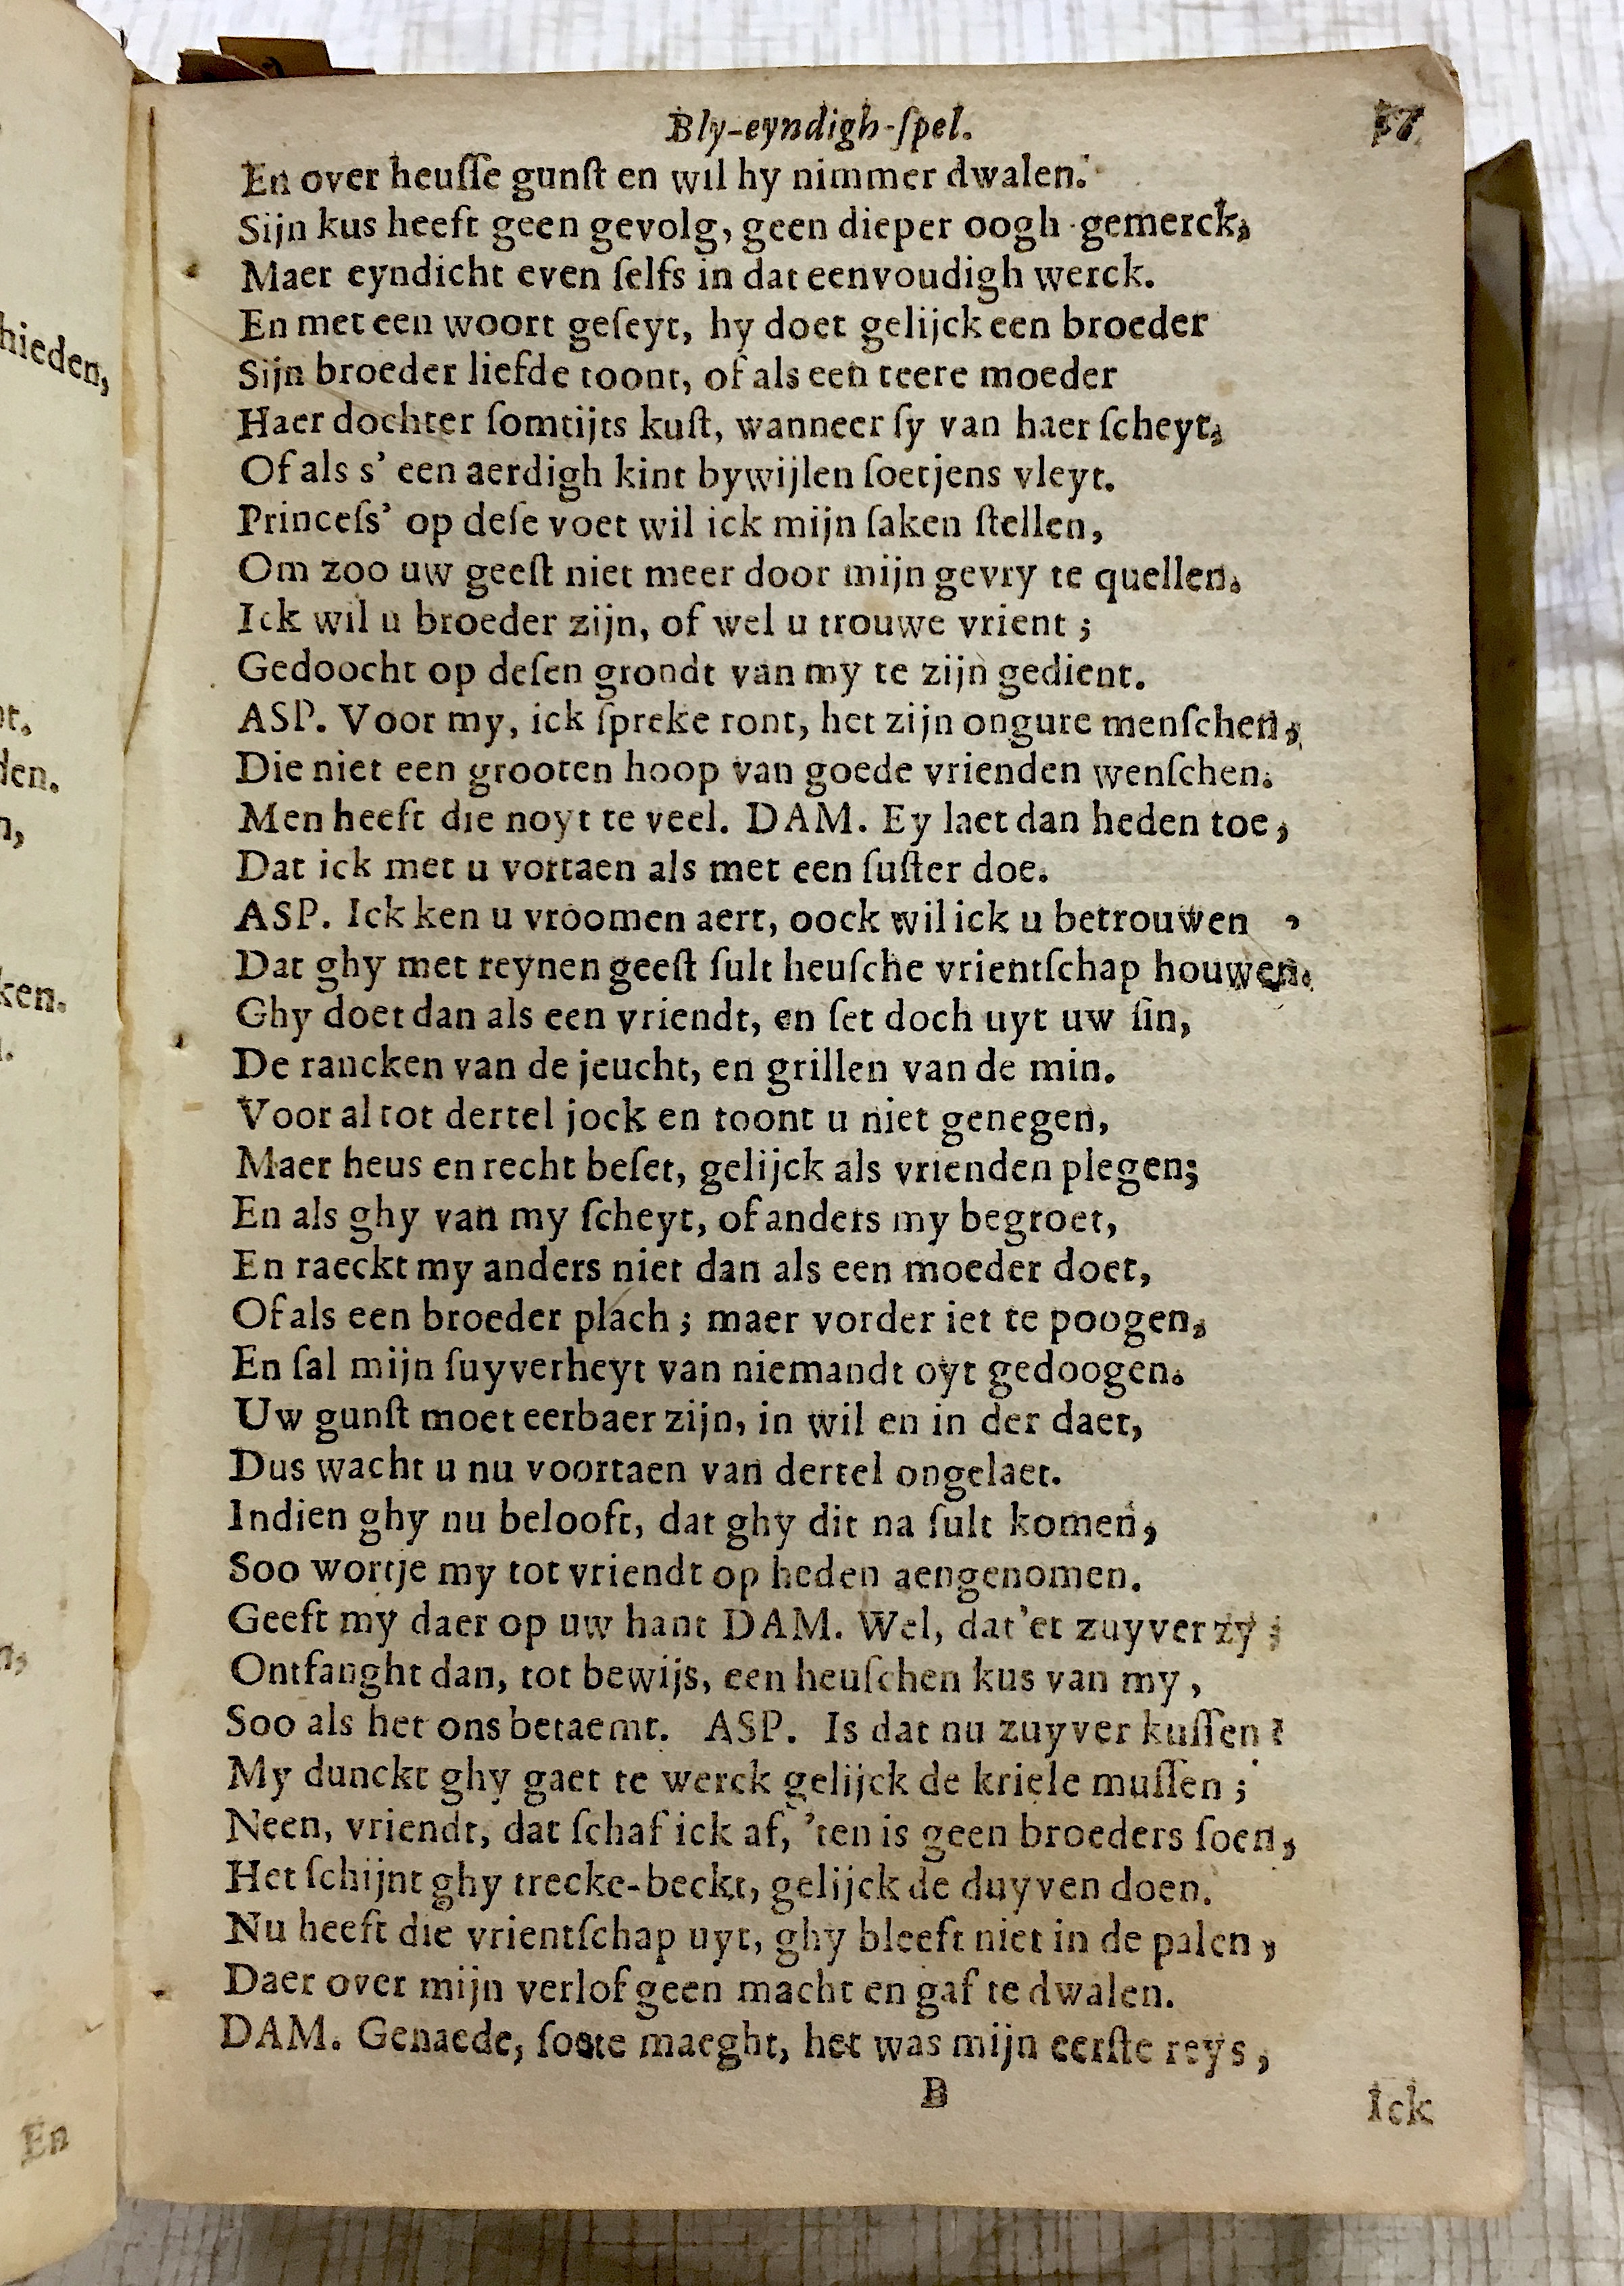 Bly-eyndigh-ſpel. 17
En over heuſſe gunſt en wil hy nimmer dwalen.
Sijn kus heeft geen gevolg, geen dieper oogh-gemerck,
Maer eyndicht even ſelfs in dat eenvoudigh werck.
En met een woort geſeyt, hy doet gelijck een broeder
Sijn broeder liefde toont, of als een teere moeder
Haer dochter ſomtijts kuſt, wanneer ſy van haer ſcheyt,
Of als s' een aerdigh kint bywijlen ſoetjens vleyt.
Princeſs' op deſe voet wil ick mijn ſaken ſtellen,
Om zoo uw geeſt niet meer door mijn gevry te quellen.
Ick wil u broeder zijn, of wel u trouwe vrient ;
Gedoocht op deſen grondt van my te zijn gedient.
ASP. Voor my, ick ſpreke ront, het zijn ongure menſchen,
Die niet een grooten hoop van goede vrienden wenſchen.
Men heeft die noyt te veel. DAM. Ey laet dan heden toe,
Dat ick met u vortaen als met een ſuſter doe.
ASP. Ick ken u vroomen aert, oock wil ick u betrouwen ,
Dat ghy met reynen geeſt ſult heuſche vrientſchap houwen.
Ghy doet dan als een vriendt, en ſet doch uyt uw ſin,
De rancken van de jeucht, en grillen van de min.
Voor al tot dertel jock en toont u niet genegen,
Maer heus en recht beſet, gelijck als vrienden plegen;
En als ghy van my ſcheyt, of anders my begroet,
En raeckt my anders niet dan als een moeder doet,
Of als een broeder plach ; maer vorder iet te poogen,
En ſal mijn ſuyverheyt van niemandt oyt gedoogen.
Uw gunſt moet eerbaer zijn, in wil en in der daet,
Dus wacht u nu voortaen van dertel ongelaet.
Indien ghy nu belooft, dat ghy dit na ſult komen,
Soo wortje my tot vriendt op heden aengenomen.
Geeft my daer op uw hant DAM. Wel, dat'et zuyver zy ;
Ontfanght dan, tot bewijs, een heuſchen kus van my ,
Soo als het ons betaemt. ASP. Is dat nu zuyver kuſſen ?
My dunckt ghy gaet te werck gelijck de kriele muſſen ;
Neen, vriendt, dat ſchaf ick af, 'ten is geen broeders ſoen,
Het ſchijnt ghy trecke-beckt, gelijck de duyven doen.
Nu heeft die vrientſchap uyt, ghy bleeft niet in de palen ,
Daer over mijn verlof geen macht en gaf te dwalen.
DAM. Genaede, ſoete maeght, het was mijn eerſte reys ,
B
Ick
hieden,
den.
n,
ken.
En